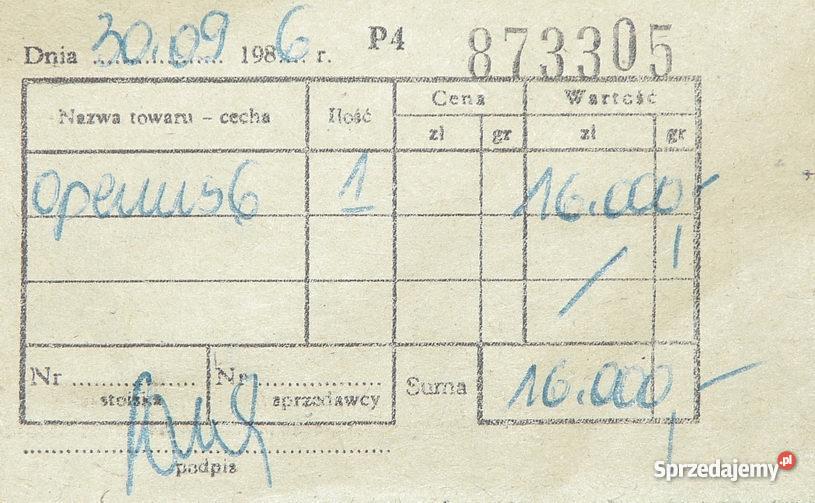 Dnia 30.09 1986 r. P4 873305
Nazwa towaru - cecha Ilość Cena Wartość
zł gr zł gr
1 16.000,-
Nr Nr Suma 16.000,-
stoiska sprzedawcy
podpis
Sprzedajemy.pl